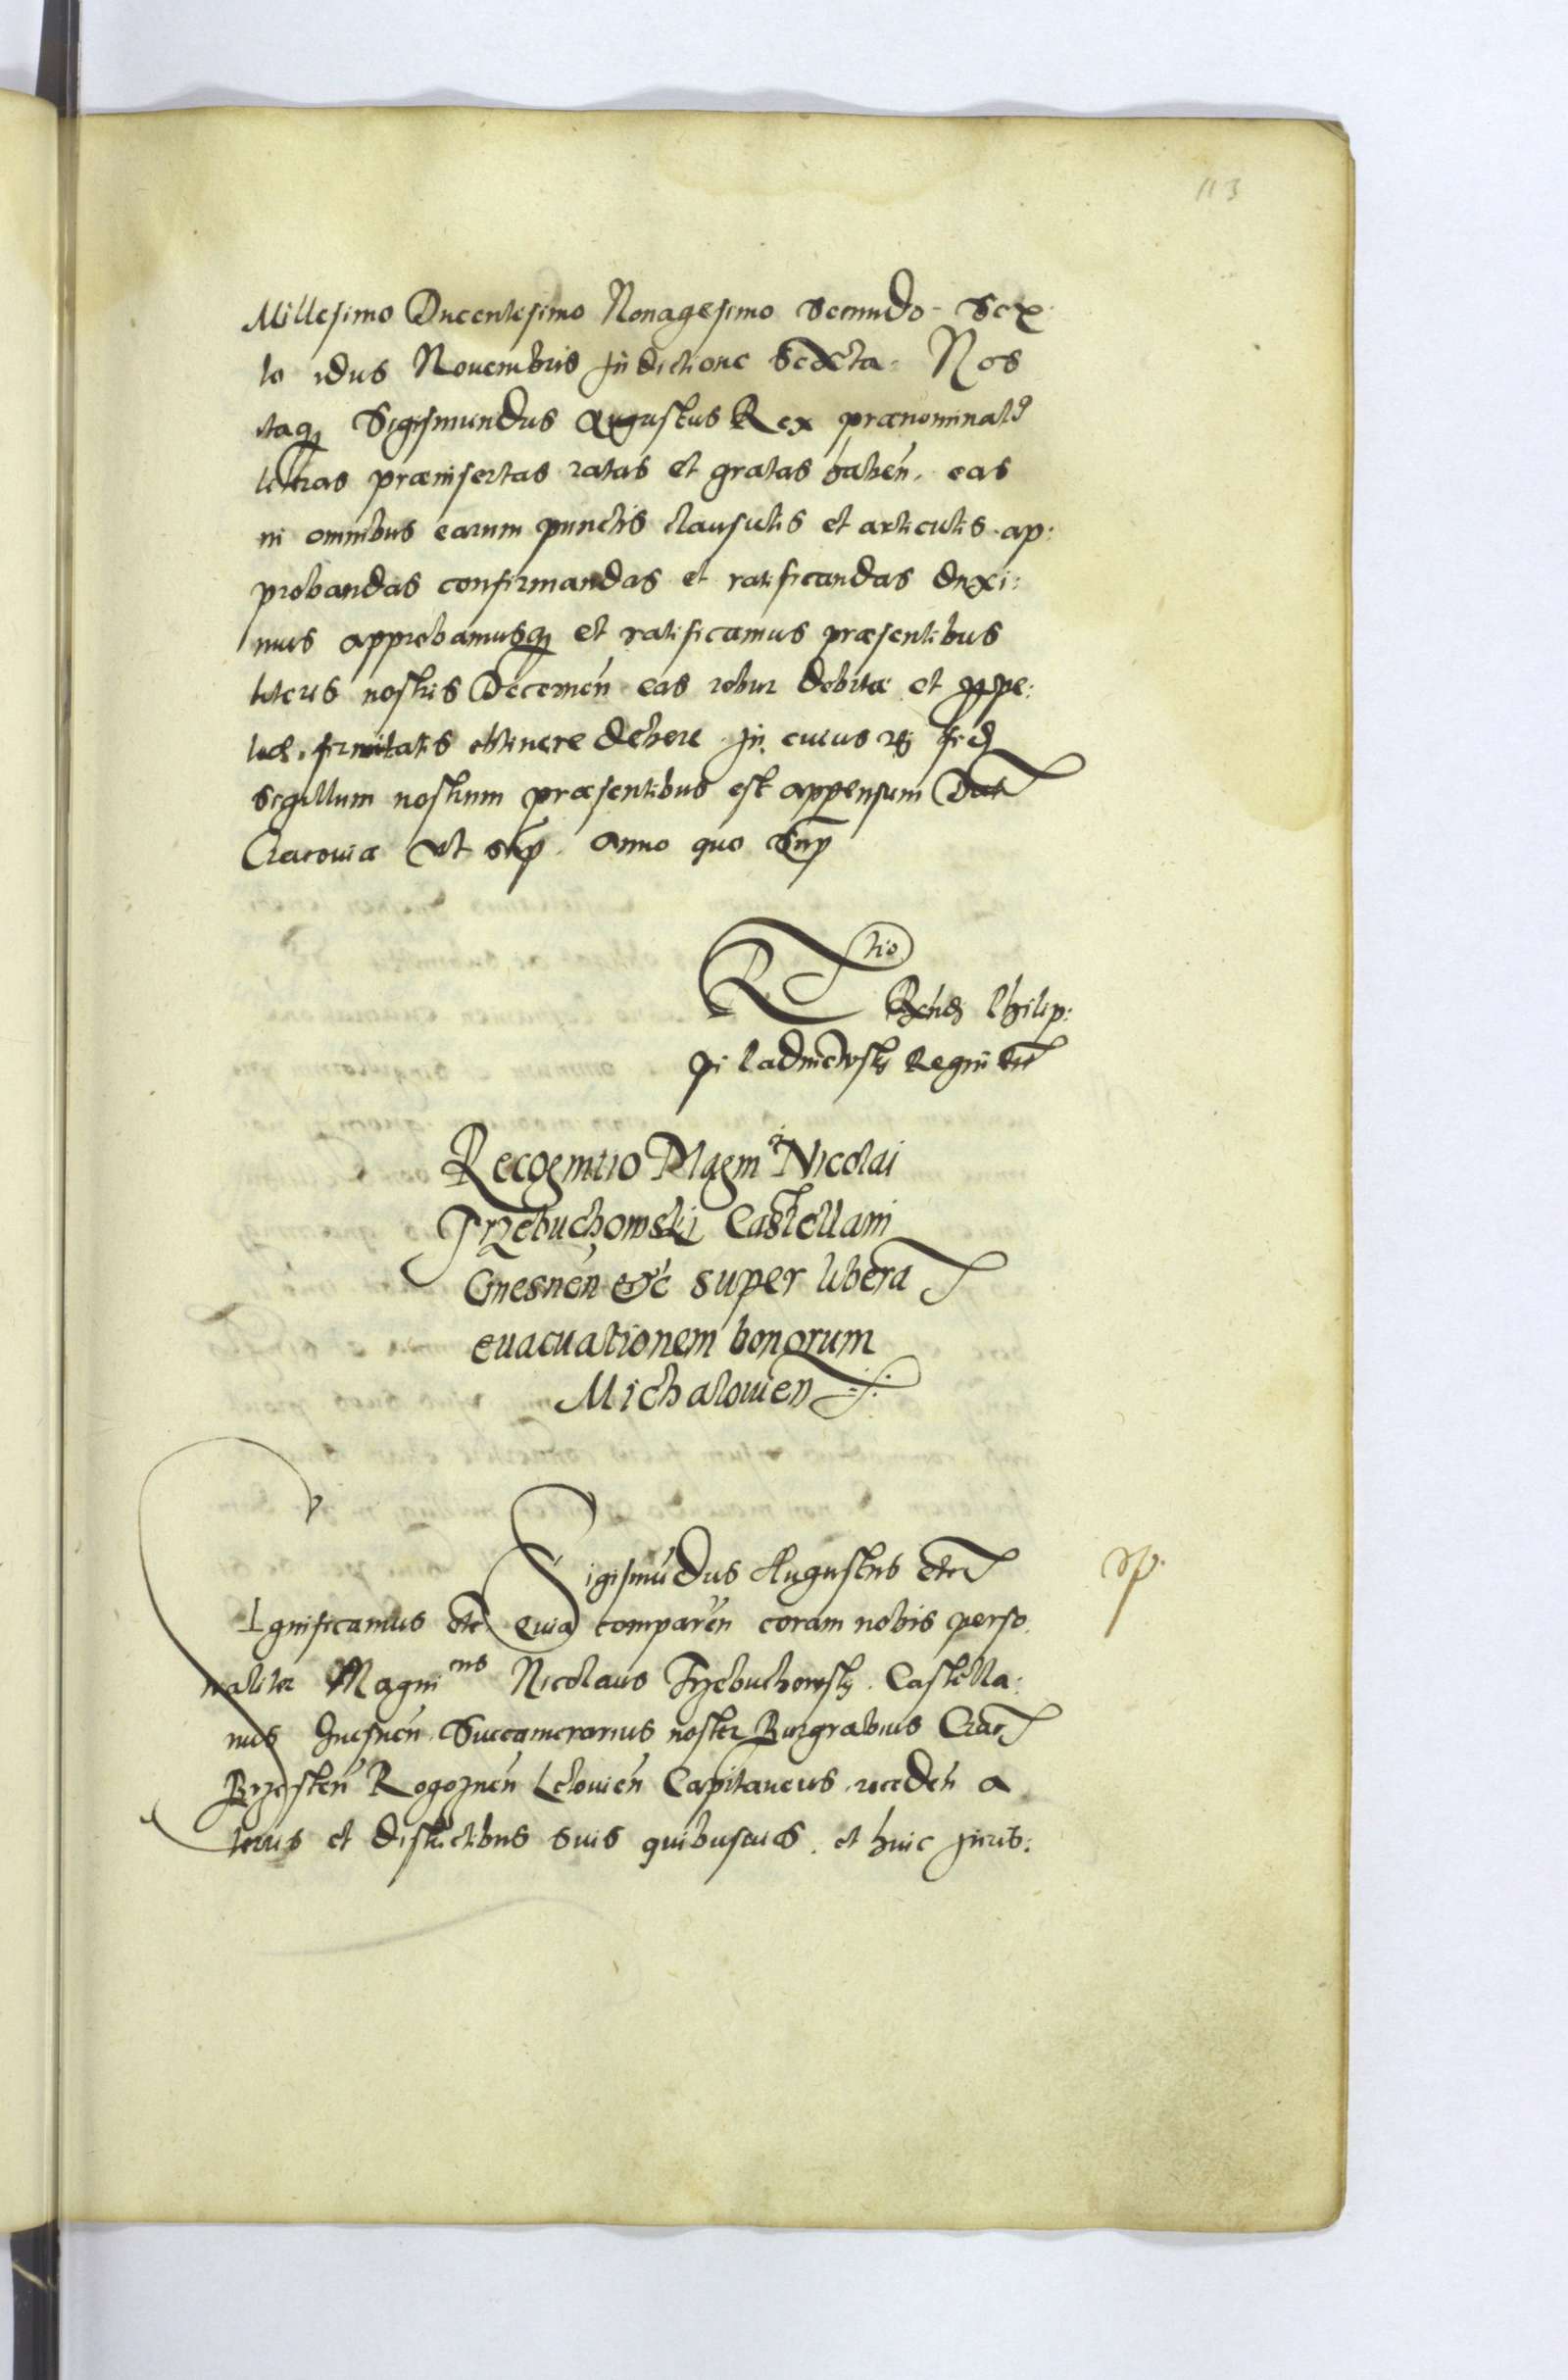 113
Millesimo Ducentesimo Nonagesimo Secundo. Sex
to idus Novembris Indictione Sexta. Nos
itaq; Sigismundus Augustus Rex prænominat9
literas præinsertas ratas et gratas haben̄. eas
in omnibus earum punctis clausulis et articulis ap:
probandas confirmandas et ratificandas duxi:
mus approbamusq; et ratificamus præsentibus
literis nostris Decernen̄ eas robur debitæ et ppe:
tuæ firmitatis obtinere debere. In cuius rei fid
Sigillum nostrum præsentibus est appensum Dat
Cracoviæ ut sup. Anno quo Sup
Rtio
Rndi Philip:
pi Padniewsky Regni etc
Recognitio Magni Nicolai
Trzebuchowskij Castellani
Gnesnen̄ &c super libera
evacuationem bonorum
Michalovien
Sigismūdus Augustus etc
Significamus etc Quia comparen̄ coram nobis perso
naliter Magnicus Nicolaus Trzebuchowsky. Castella:
nus Gnesnen̄ Succamerarius noster Burgrabius Crac
Brzesten̄ Rogoznen̄ Lelovien̄ Capitaneus. receden̄ a
terris et districtibus suis quibusvis. et huic Juris: